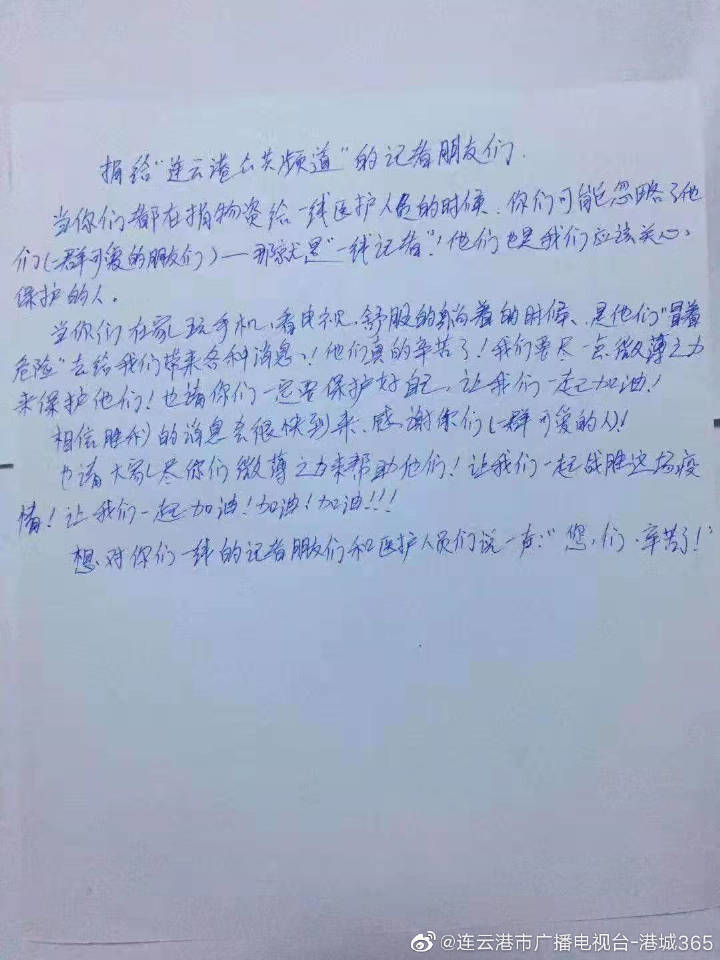 捐给“连云港公共频道”的记者朋友们.
当你们都在捐物资给一线医护人员的时候、你们可能已忽略了他
们(一群可爱的朋友们)—那就是“一线记者”！他们也是我们应该关心、
保护的人。
当你们在家玩手机，看电视，舒服的躺着的时候、是他们“冒着
危险”去给我们带来各种消息、！他们真的辛苦了！我们要尽一点微薄之力
来保护他们！也请你们一定要保护好自己，让我们一起加油！
相信胜利的消息会很快到来、感谢你们(一群可爱的人)！
也请大家尽你们微薄之力来帮助他们！让我们一起战胜这场疫
情！让我们一起加油！加油！加油！！！
想对你们一线的记者朋友们和医护人员们说一声：“您们、辛苦了！”
@连云港市广播电视台-港城365